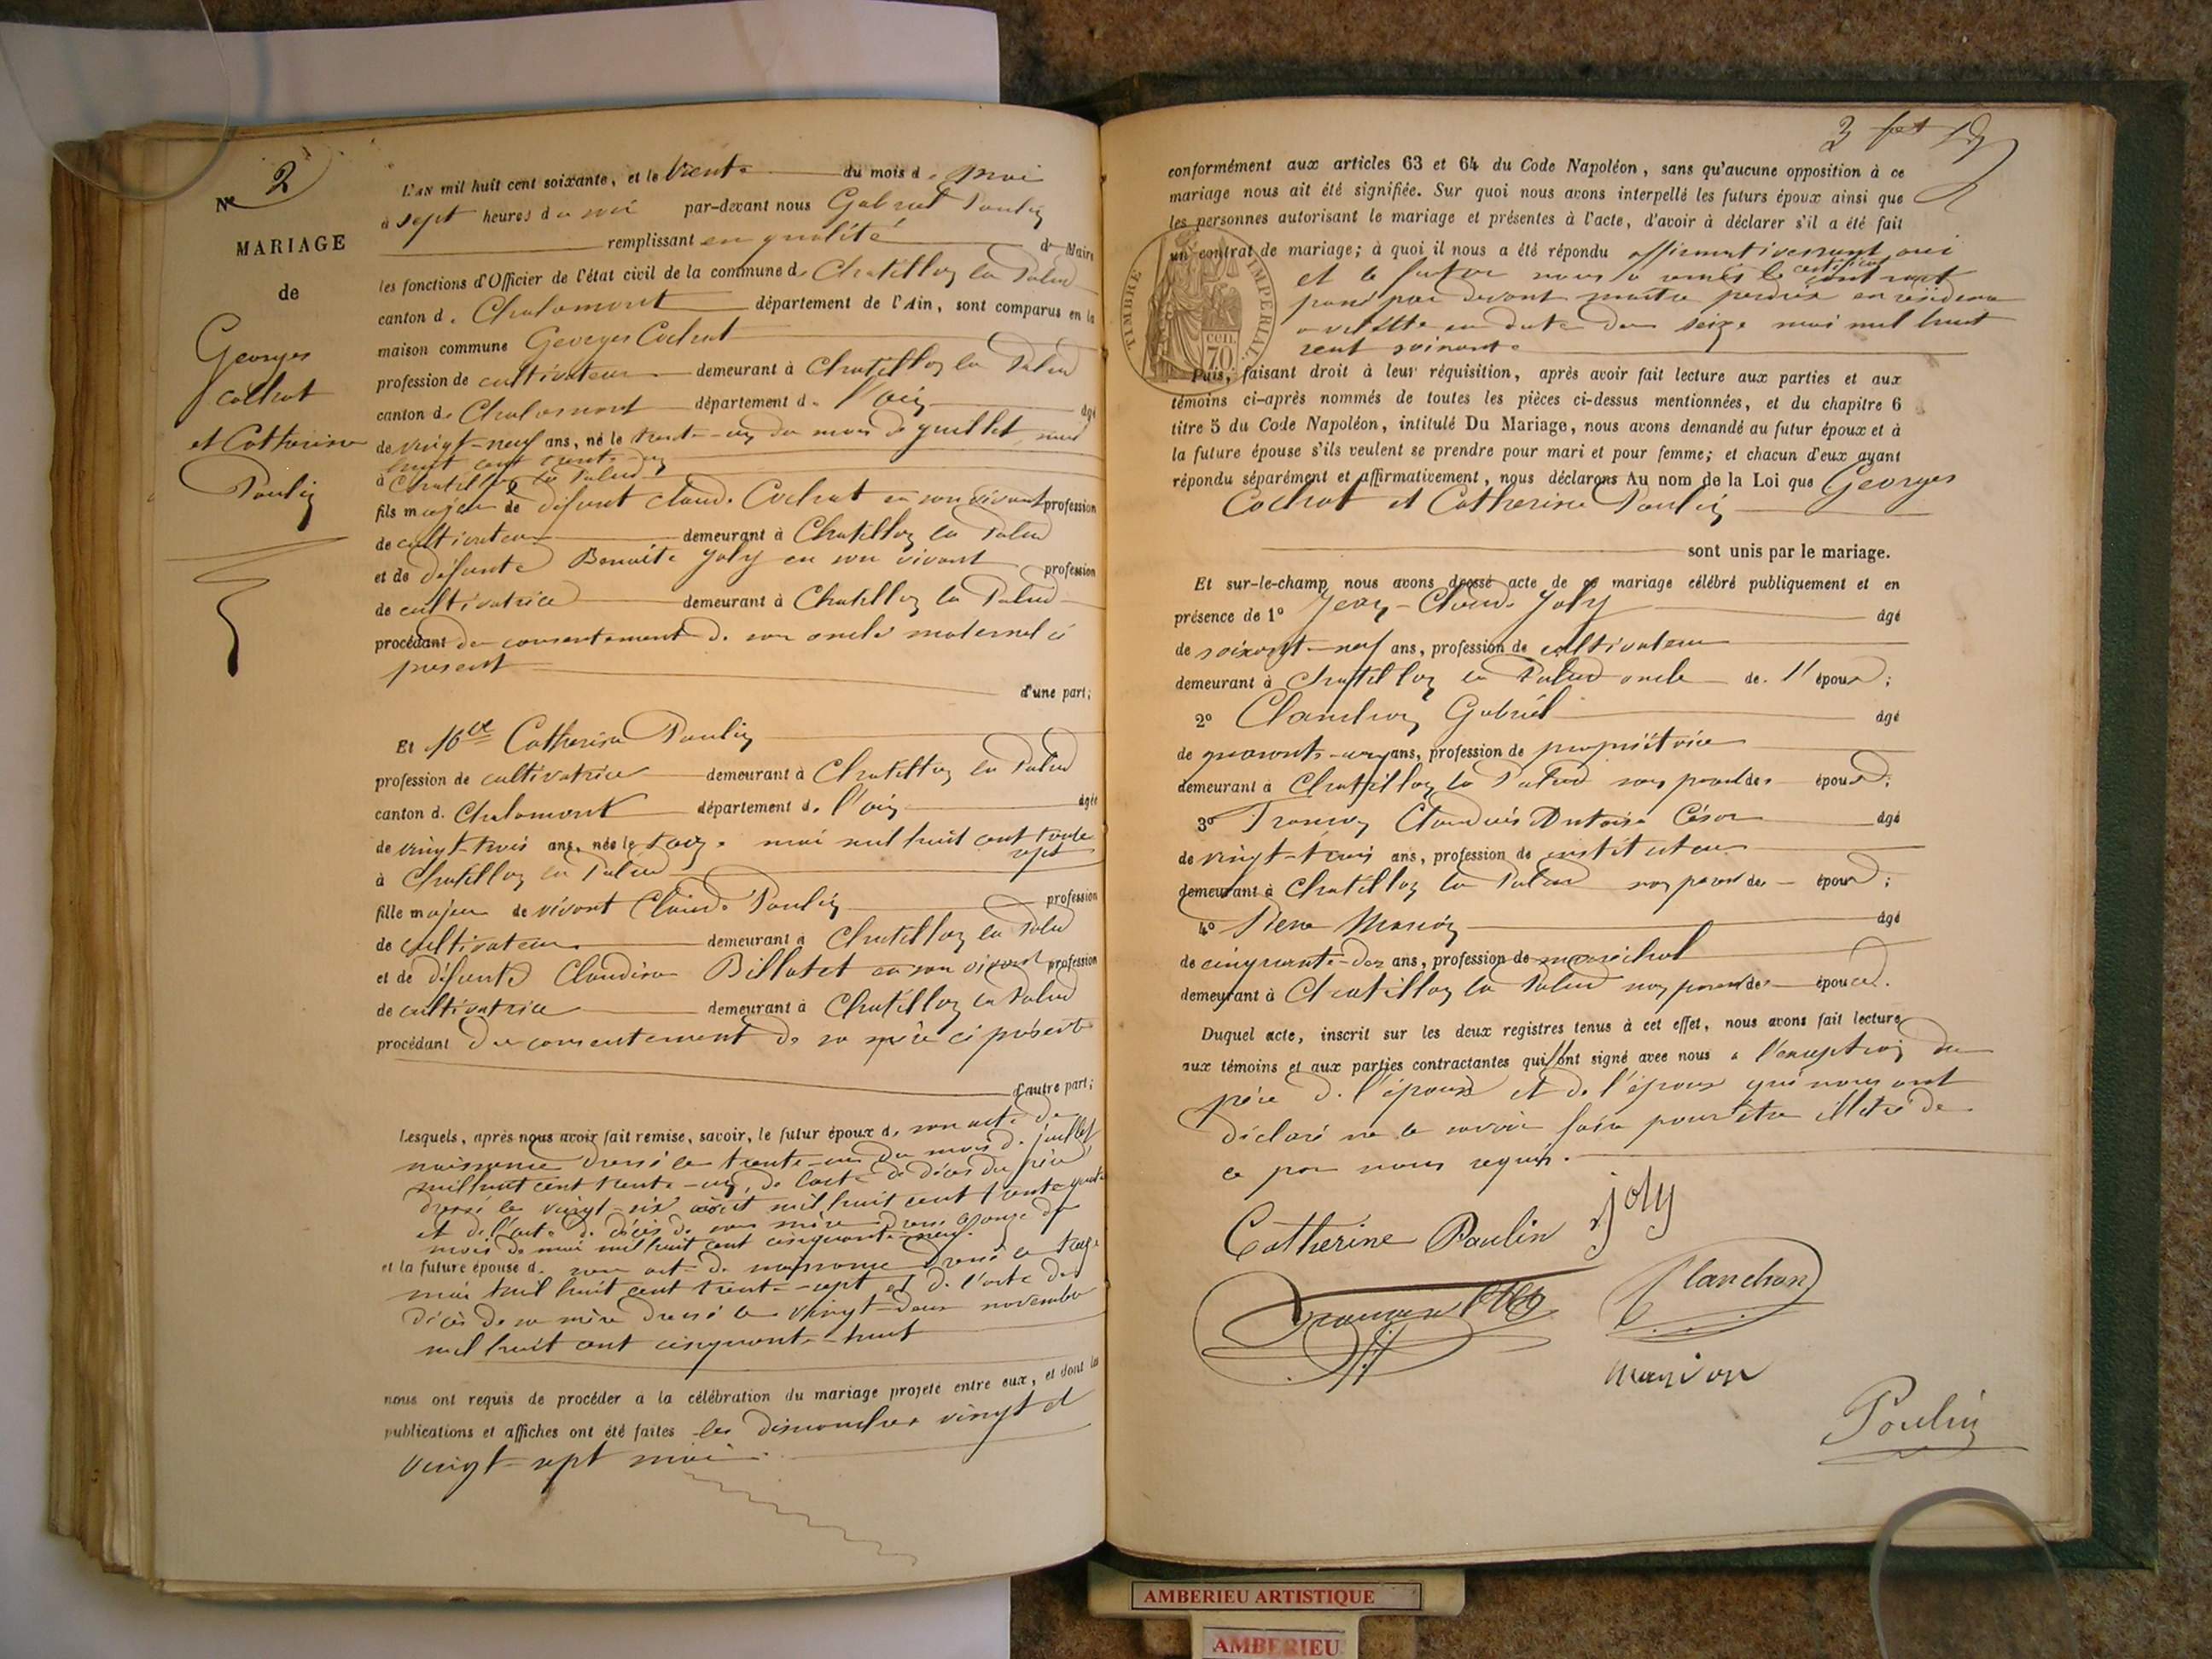 Nº 2
MARIAGE
de
Georges
Cochat
et Catherine
Paulin
L'AN mil huit cent soixante, et le trente du mois de mai
à sept heures du soir par-devant nous Gabriel Paulin
remplissant en qualité de Maire
les fonctions d'Officier de l'état civil de la commune de Chatillon la Palud
canton de Chalamont département de l'Ain, sont comparus en la
maison commune Georges Cochat
profession de cultivateur demeurant à Chatillon la Palud
canton de Chalamont département de l'ain âgé
de vingt-neuf ans, né le trente-un du mois de juillet mil
huit cent trente-un
à Chatillon la Palud
fils majeur de défunt Claude Cochat en son vivant profession
de cultivateur demeurant à Chatillon la Palud
et de défunte Benoite Joly en son vivant profession
de cultivatrice demeurant à Chatillon la Palud
procédant du consentement de son oncle maternel ci
présent
d'une part;
Et Mlle Catherine Paulin
profession de cultivatrice demeurant à Chatillon la Palud
canton de Chalamont département de l'ain âgée
de vingt-trois ans, née le treize mai mil huit cent trente
sept
à Chatillon la Palud
fille majeure de vivant Claude Paulin profession
de cultivateur demeurant à Chatillon la Palud
et de défunte Claudine Billotet en son vivant profession
de cultivatrice demeurant à Chatillon la Palud
procédant du consentement de son père ci présent
d'autre part;
Lesquels, après nous avoir fait remise, savoir, le futur époux de son acte de
naissance dressé le trente-un du mois de juillet
mil huit cent trente-un, de l'acte de décès du père
dressé le vingt-six août mil huit cent trente quatre
et de l'acte de décès de sa mère dressé le onze du
mois de mai mil huit cent cinquante-neuf.
et la future épouse de son acte de naissance dressé le treize
mai mil huit cent trente-sept et de l'acte de
décès de sa mère dressé le vingt-deux novembre
mil huit cent cinquante-huit
nous ont requis de procéder à la célébration du mariage projeté entre eux, et dont les
publications et affiches ont été faites les dimanches vingt et
vingt-sept mai
3
conformément aux articles 63 et 64 du Code Napoléon, sans qu'aucune opposition à ce
mariage nous ait été signifiée. Sur quoi nous avons interpellé les futurs époux ainsi que
les personnes autorisant le mariage et présentes à l'acte, d'avoir à déclarer s'il a été fait
un contrat de mariage; à quoi il nous a été répondu affirmativement oui
et le futur nous a remis le certificat contrat
passé par devant maître perdrix en résidence
a villette en date du seize mai mil huit
cent soixante
TIMBRE IMPERIAL
CEN. 70
Puis, faisant droit à leur réquisition, après avoir fait lecture aux parties et aux
témoins ci-après nommés de toutes les pièces ci-dessus mentionnées, et du chapitre 6
titre 5 du Code Napoléon, intitulé Du Mariage, nous avons demandé au futur époux et à
la future épouse s'ils veulent se prendre pour mari et pour femme; et chacun d'eux ayant
répondu séparément et affirmativement, nous déclarons Au nom de la Loi que Georges
Cochat et Catherine Paulin
sont unis par le mariage.
Et sur-le-champ nous avons dressé acte de ce mariage célébré publiquement et en
présence de 1º Jean-Claude Joly âgé
de soixante-neuf ans, profession de cultivateur
demeurant à Chatillon la Palud oncle de l'époux;
2º Planchon Gabriel âgé
de quarante-un ans, profession de propriétaire
demeurant à Chatillon la Palud non parent des époux;
3º Claudius Antoine César âgé
de vingt-trois ans, profession de instituteur
demeurant à Chatillon la Palud non parent des époux;
4º Pierre Marion âgé
de cinquante-deux ans, profession de maréchal
demeurant à Chatillon la Palud non parent des époux.
Duquel acte, inscrit sur les deux registres tenus à cet effet, nous avons fait lecture
aux témoins et aux parties contractantes qui l'ont signé avec nous à l'exception du
père de l'épouse et de l'époux qui nous ont
déclaré ne le savoir faire pour être illétré de
ce par nous requis.
Catherine Paulin joly
Planchon
marion
Paulin
AMBERIEU ARTISTIQUE
AMBERIEU